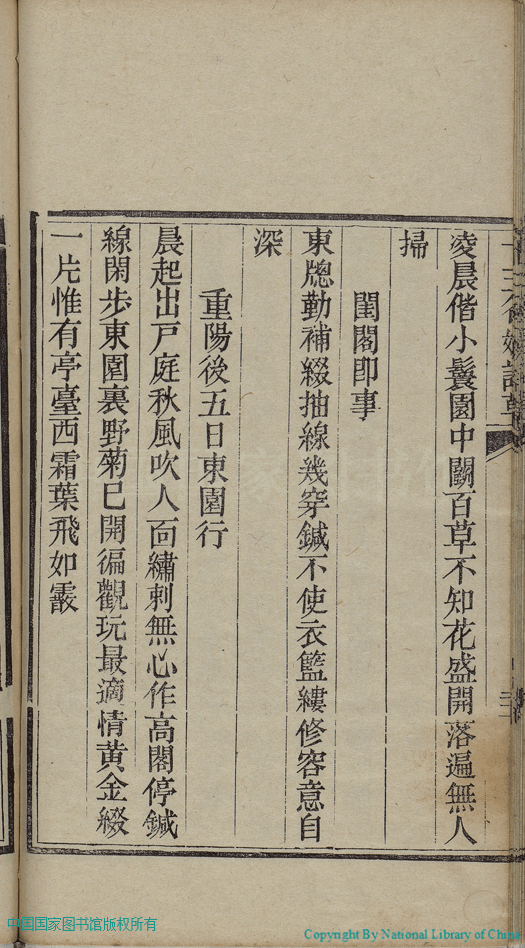 凌晨偕小鬟園中鬭百草不知花盛開落遍無人
掃
閨閣即事
東牕勤補綴抽線幾穿鍼不使衣籃縷修容意自
深
重陽後五日東園行
晨起出戸庭秋風吹人面繡刺無心作高閣停鍼
線閑步東園裏野菊已開徧觀玩最適情黃金綴
一片惟有亭臺西霜葉飛如霰
中国国家图书馆版权所有
Copyright By National Library of China